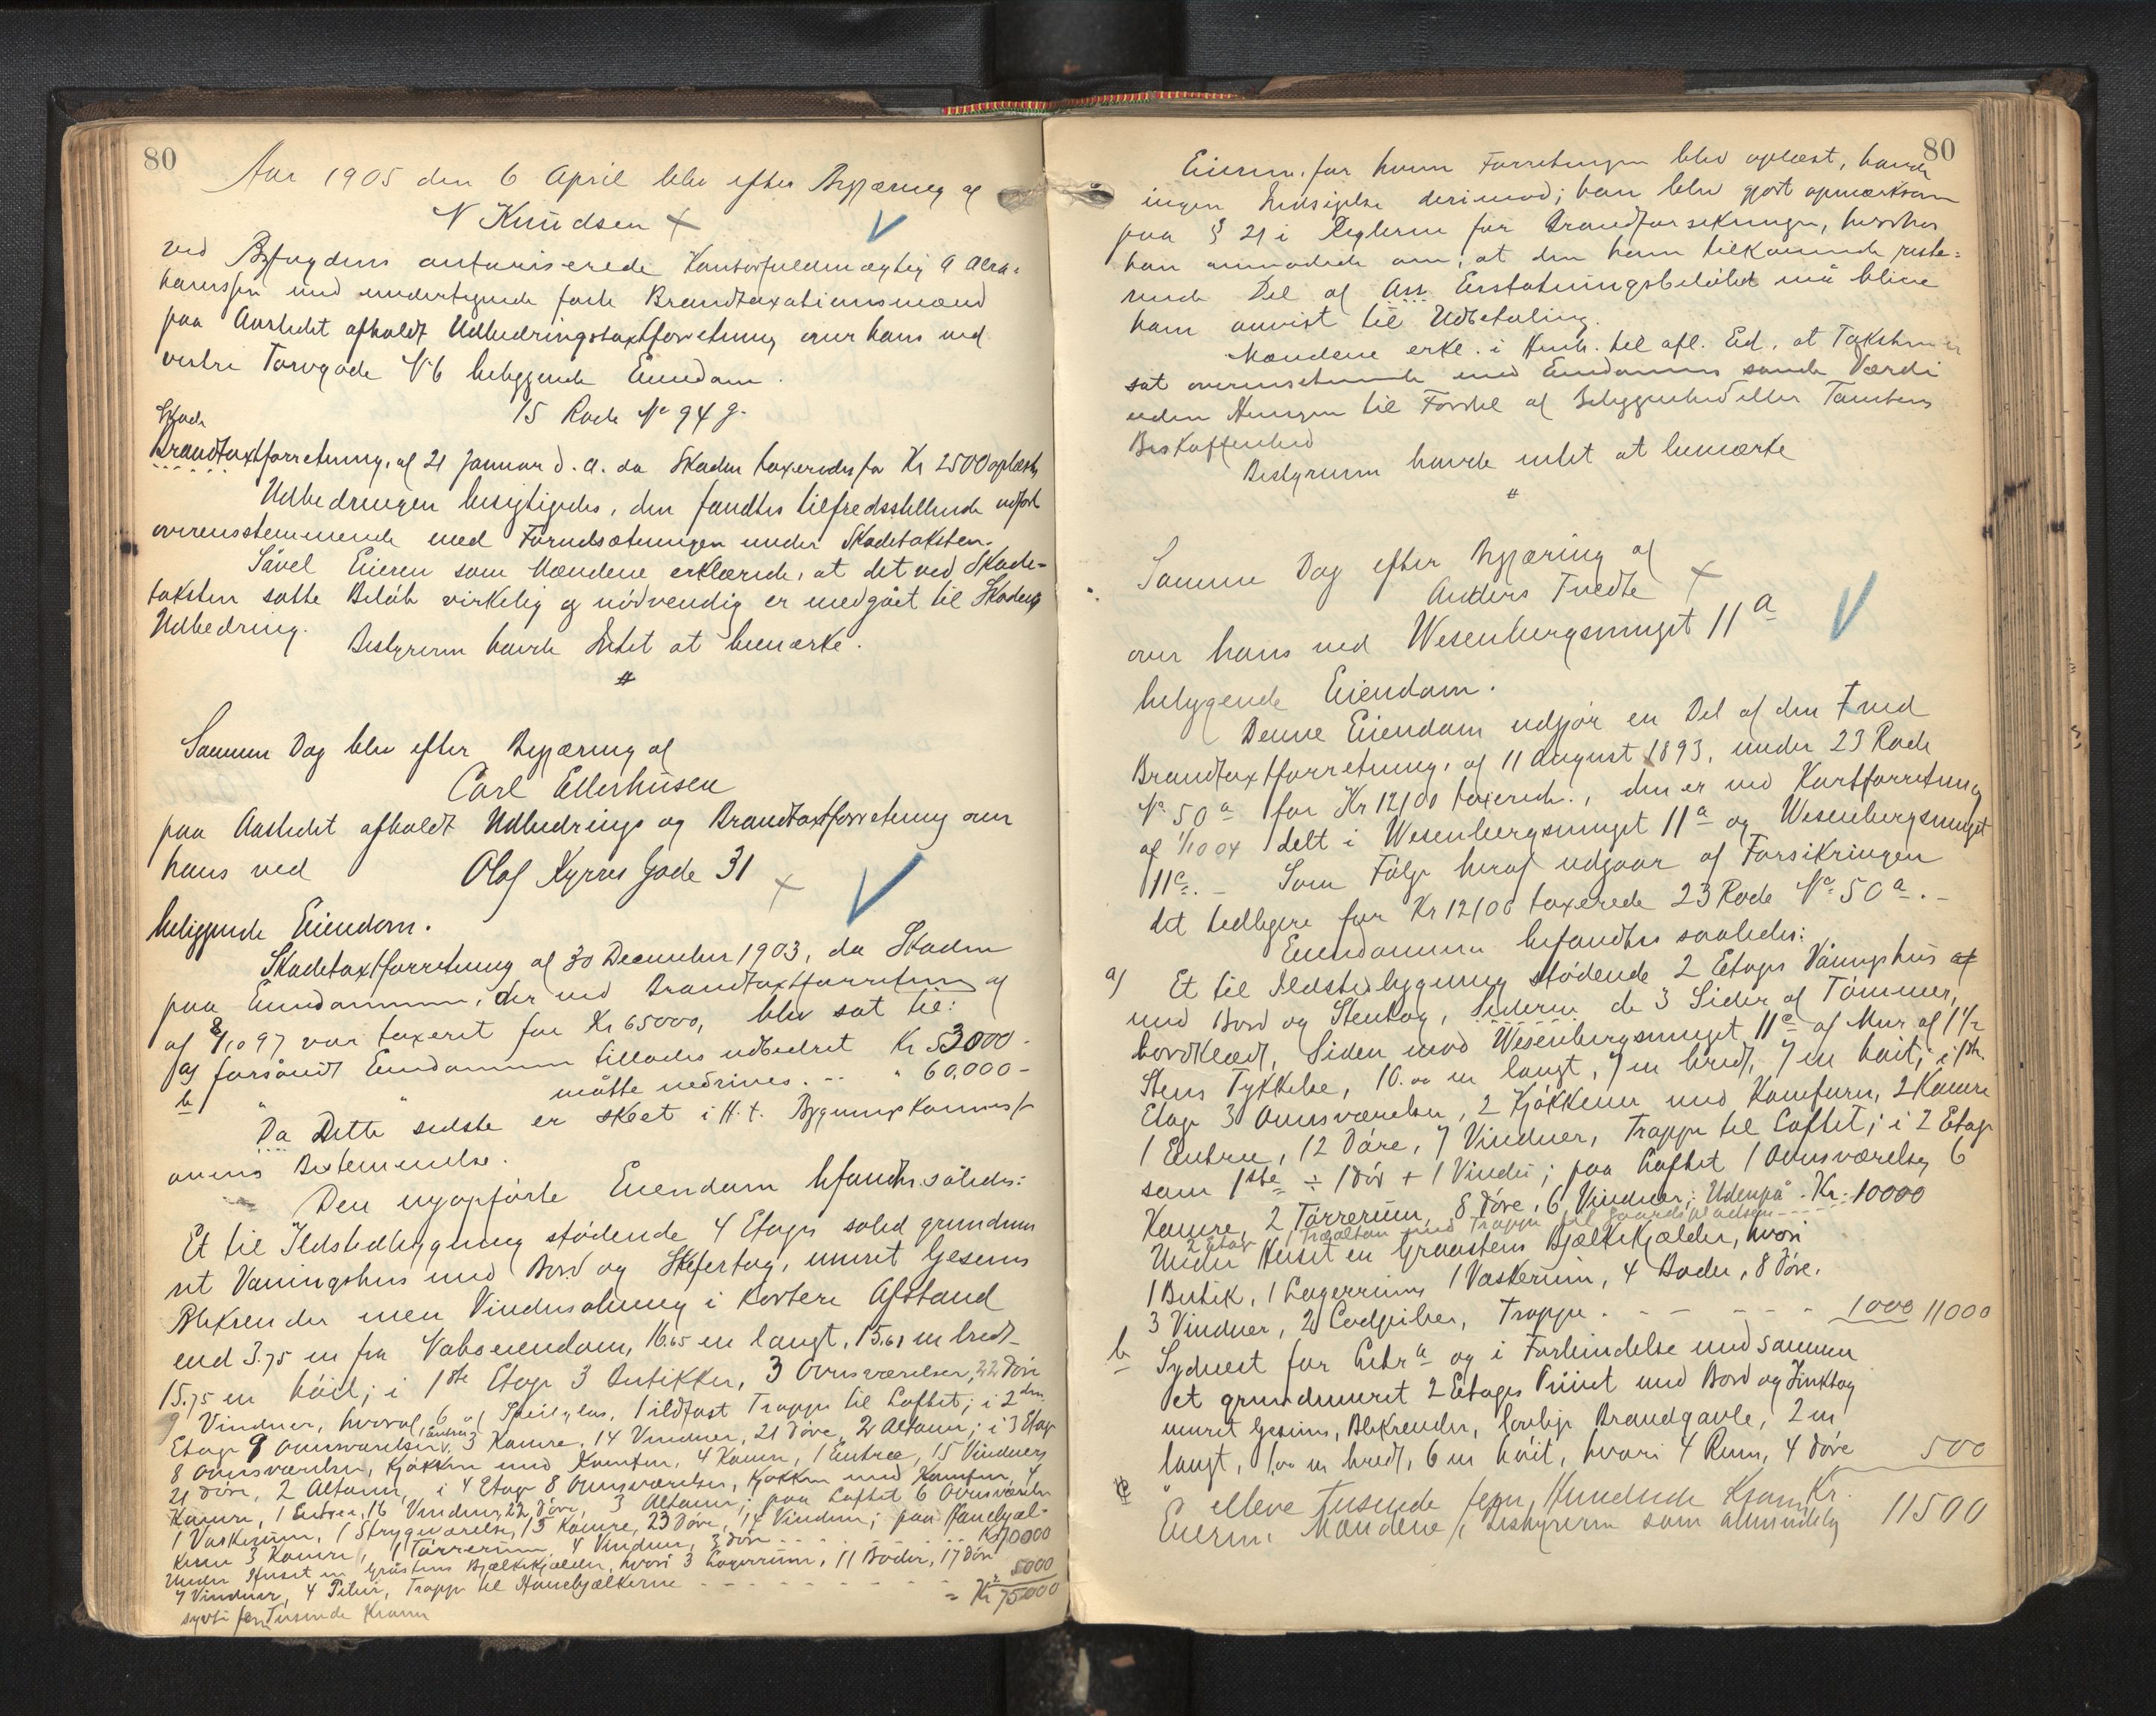 80
Aar 1905 den 6 April blev efter Begjæring af
N Knudsen
ved Byfogdens autoriserede Kontorfuldmægtig A Abra-
hamssen med undertegnede faste Brandtaxationsmænd
paa Aastedet afholdt Udbedringstaxtforretning over hans ved
vestre Torvgade N: 6 beliggende Eiendom.
15 Rode No 94 g.
Skade
Brandtaxtforretning af 21 Januar d. a. da Skaden taxeredes for Kr 2500 oplæstes
Udbedringen besigtigedes, den fandtes tilfredsstillende udført
overensstemmende med Forudsætningen under Skadetaksten.
Såvel Eieren som Mændene erklærede, at det ved Skade-
taksten satte Beløb virkelig og nødvendig er medgået til Skadens
Udbedring.
Bestyreren havde Intet at bemærke.
#
Samme Dag blev efter Begjæring af
Carl Ellerhusen
paa Aastedet afholdt Udbedrings og Brandtaxtforretning over
hans ved Olaf Kyrres Gade 31
beliggende Eiendom.
Skadetaxtforretning af 30 December 1903, da Skaden
paa Eiendommen, der ved Brandtaxtforretning af
af 8/10 97 var taxeret for Kr 65000, blev sat til:
a) forsåvidt Eiendommen tillades udbedret Kr 53000.
b " " måtte nedrives. .. " 60,000 -
Da Dette sidste er skeet i H. t. Bygningskommissi-
onens Bestemmelse.
Den nyopførte Eiendom befandtes således:
Et til Ildstedbygning stødende 4 Etages solid grundmu
ret Vaaningshus med Bord og Skifertag, muret Gesims
Blikrender men Vindusåbning i kortere Afstand
end 3.75 m fra Naboeiendom, 16.65 m langt, 15.61 m bredt
15.75 m høit; i 1ste Etage 3 Butikker, 3 Ovnsværelser, 22 Døre
9 Vinduer, hvoraf 6 af Speilglas, 1 ildfast Trappe til Loftet; i 2den
Etage 9 Ovnsværelser, 3 Kamre, 14 Vinduer, 21 Døre, 2 Altaner; i 3 Etage
8 Ovnsværelser, Kjøkken med Komfur, 4 Kamre, 1 Entree, 15 Vinduer,
21 Døre, 2 Altaner, i 4 Etage 8 Ovnsværelser, Kjøkken med Komfur, 4
Kamre, 1 Entree, 16 Vinduer, 22 Døre, 3 Altaner; paa Loftet 6 Ovnsværelser
1 Vaskerum, 1 Strygeværelse, 13 Kamre, 23 Døre, 14 Vinduer; paa Hanebjæl-
kerne 3 Kamre, 1 Tørrerum, 4 Vinduer, 3 Døre . . . . Kr 70000
Under Huset en Gråstens Bjælkekjælder, hvori 3 Lagerrum, 11 Boder, 17 Døre
7 Vinduer, 4 Piler, Trappe til Hanebjælkerne - - - - - 5000
= Kr 75000
sytti fem Tusinde Kroner
80
Eieren, for hvem Forretningen blev oplæst, havde
ingen Indsigelse derimod; han blev gjort opmærksom
paa § 21 i Reglerne for Brandforsikringen, hvorhos
han anmodede om, at den ham tilkommende reste-
rende Del af Ass Erstatningsbeløbet må blive
ham anvist til Udbetaling.
Mændene erkl. i Henh. til afl. Ed, at Taksten er
sat overensstemmende med Eiendommens sande Værdi
uden Hensyn til Fordel af Beliggenhed eller Tomtens
Beskaffenhed
Bestyreren havde intet at bemærke
#
Samme Dag efter Begjæring af
Anders Tvedte
over hans ved Wesenbergsmuget 11 a
beliggende Eiendom.
Denne Eiendom udgjør en Del af den ved
Brandtaxtforretning af 11 August 1893, under 23 Rode
No 50 a for Kr 12100 taxerede., den er ved Kartforretning
af 1/10 04 delt i Wesenbergsmuget 11 a og Wesenbergsmuget
11 c. - Som Følge heraf udgaar af Forsikringen
det tidligere for Kr 12100 taxerede 23 Rode No 50 a. -
Eiendommen befandtes saaledes:
a) Et til Ildstedbygning stødende 2 Etages Våningshus af
med Bord og Stentag, Siderne de 3 Sider af Tømmer,
bordklædt, Siden mod Wesenbergsmuget 11 c af Mur af 1 1/2
Stens Tykkelse, 10.00 m langt, 7 m bredt, 7 m høit; i 1ste
Etage 3 Ovnsværelser, 2 Kjøkkener med Komfurer, 2 Kamre
1 Entree, 12 Døre, 7 Vinduer, Trappe til Loftet; i 2 Etage
som 1ste ÷ 1 Dør + 1 Vindu; paa Loftet 1 Ovnsværelse, 6
Kamre, 2 Tørrerum, 8 Døre, 6 Vinduer; Udenpå . Kr: 10000
2 Etage 1 Træaltan med Trappe til Gaardspladsen - - - -
Under Huset en Graastens Bjælkekjælder, hvori
1 Butik, 1 Lagerrum, 1 Vaskerum, 4 Boder, 8 Døre,
3 Vinduer, 2 Lodpiber, Trappe . - - - - . 1000 11000
b Sydvest for Litr a og i Forbindelse med samme
et grundmuret 2 Etages Privet med Bord og Zinktag
muret Gesims, Blikrender, lovlige Brandgavle, 2 m
langt, 1.00 m bredt, 6 m høit, hvori 4 Rum, 4 Døre 500
elleve Tusinde fem Hundrede Kroner Kr.
Eieren, Mændene, Bestyreren som almindelig 11500